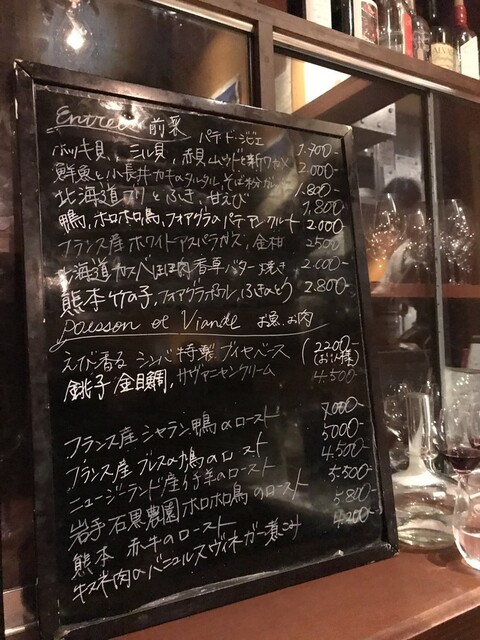 Entrées 前菜 パテ ド ジビエ 1.700-
ホッキ貝, ミル貝, 赤貝ムッドと新ワカメ 2.000-
鮮魚と小長井カキのタルタル, そば粉 1.800-
北海道ブリとふき, 甘えび 1.800-
鴨, ホロホロ鳥, フォアグラのパテアンクルート 2.000
フランス産ホワイトアスパラガス, 金柑 2500
北海道カスベほほ肉香草バター焼き 2.600-
熊本竹の子, フォアグラポワレ, ふきのとう 2.800-
Poisson et Viande お魚, お肉
えび香る シンバ特製ブイヤベース (2200- (お1人様)
銚子 金目鯛, サヴァニャンクリーム 4.500-
フランス産シャラン鴨のロースト 7.000-
フランス産 ブレスの鳩のロースト 5000-
ニュージーランド産仔羊のロースト 4.500-
岩手石黒農園ホロホロ鳥のロースト 5.500
熊本 赤牛のロースト 5.800
牛ホホ肉のバニュルスヴィネガー煮こみ 4.200-